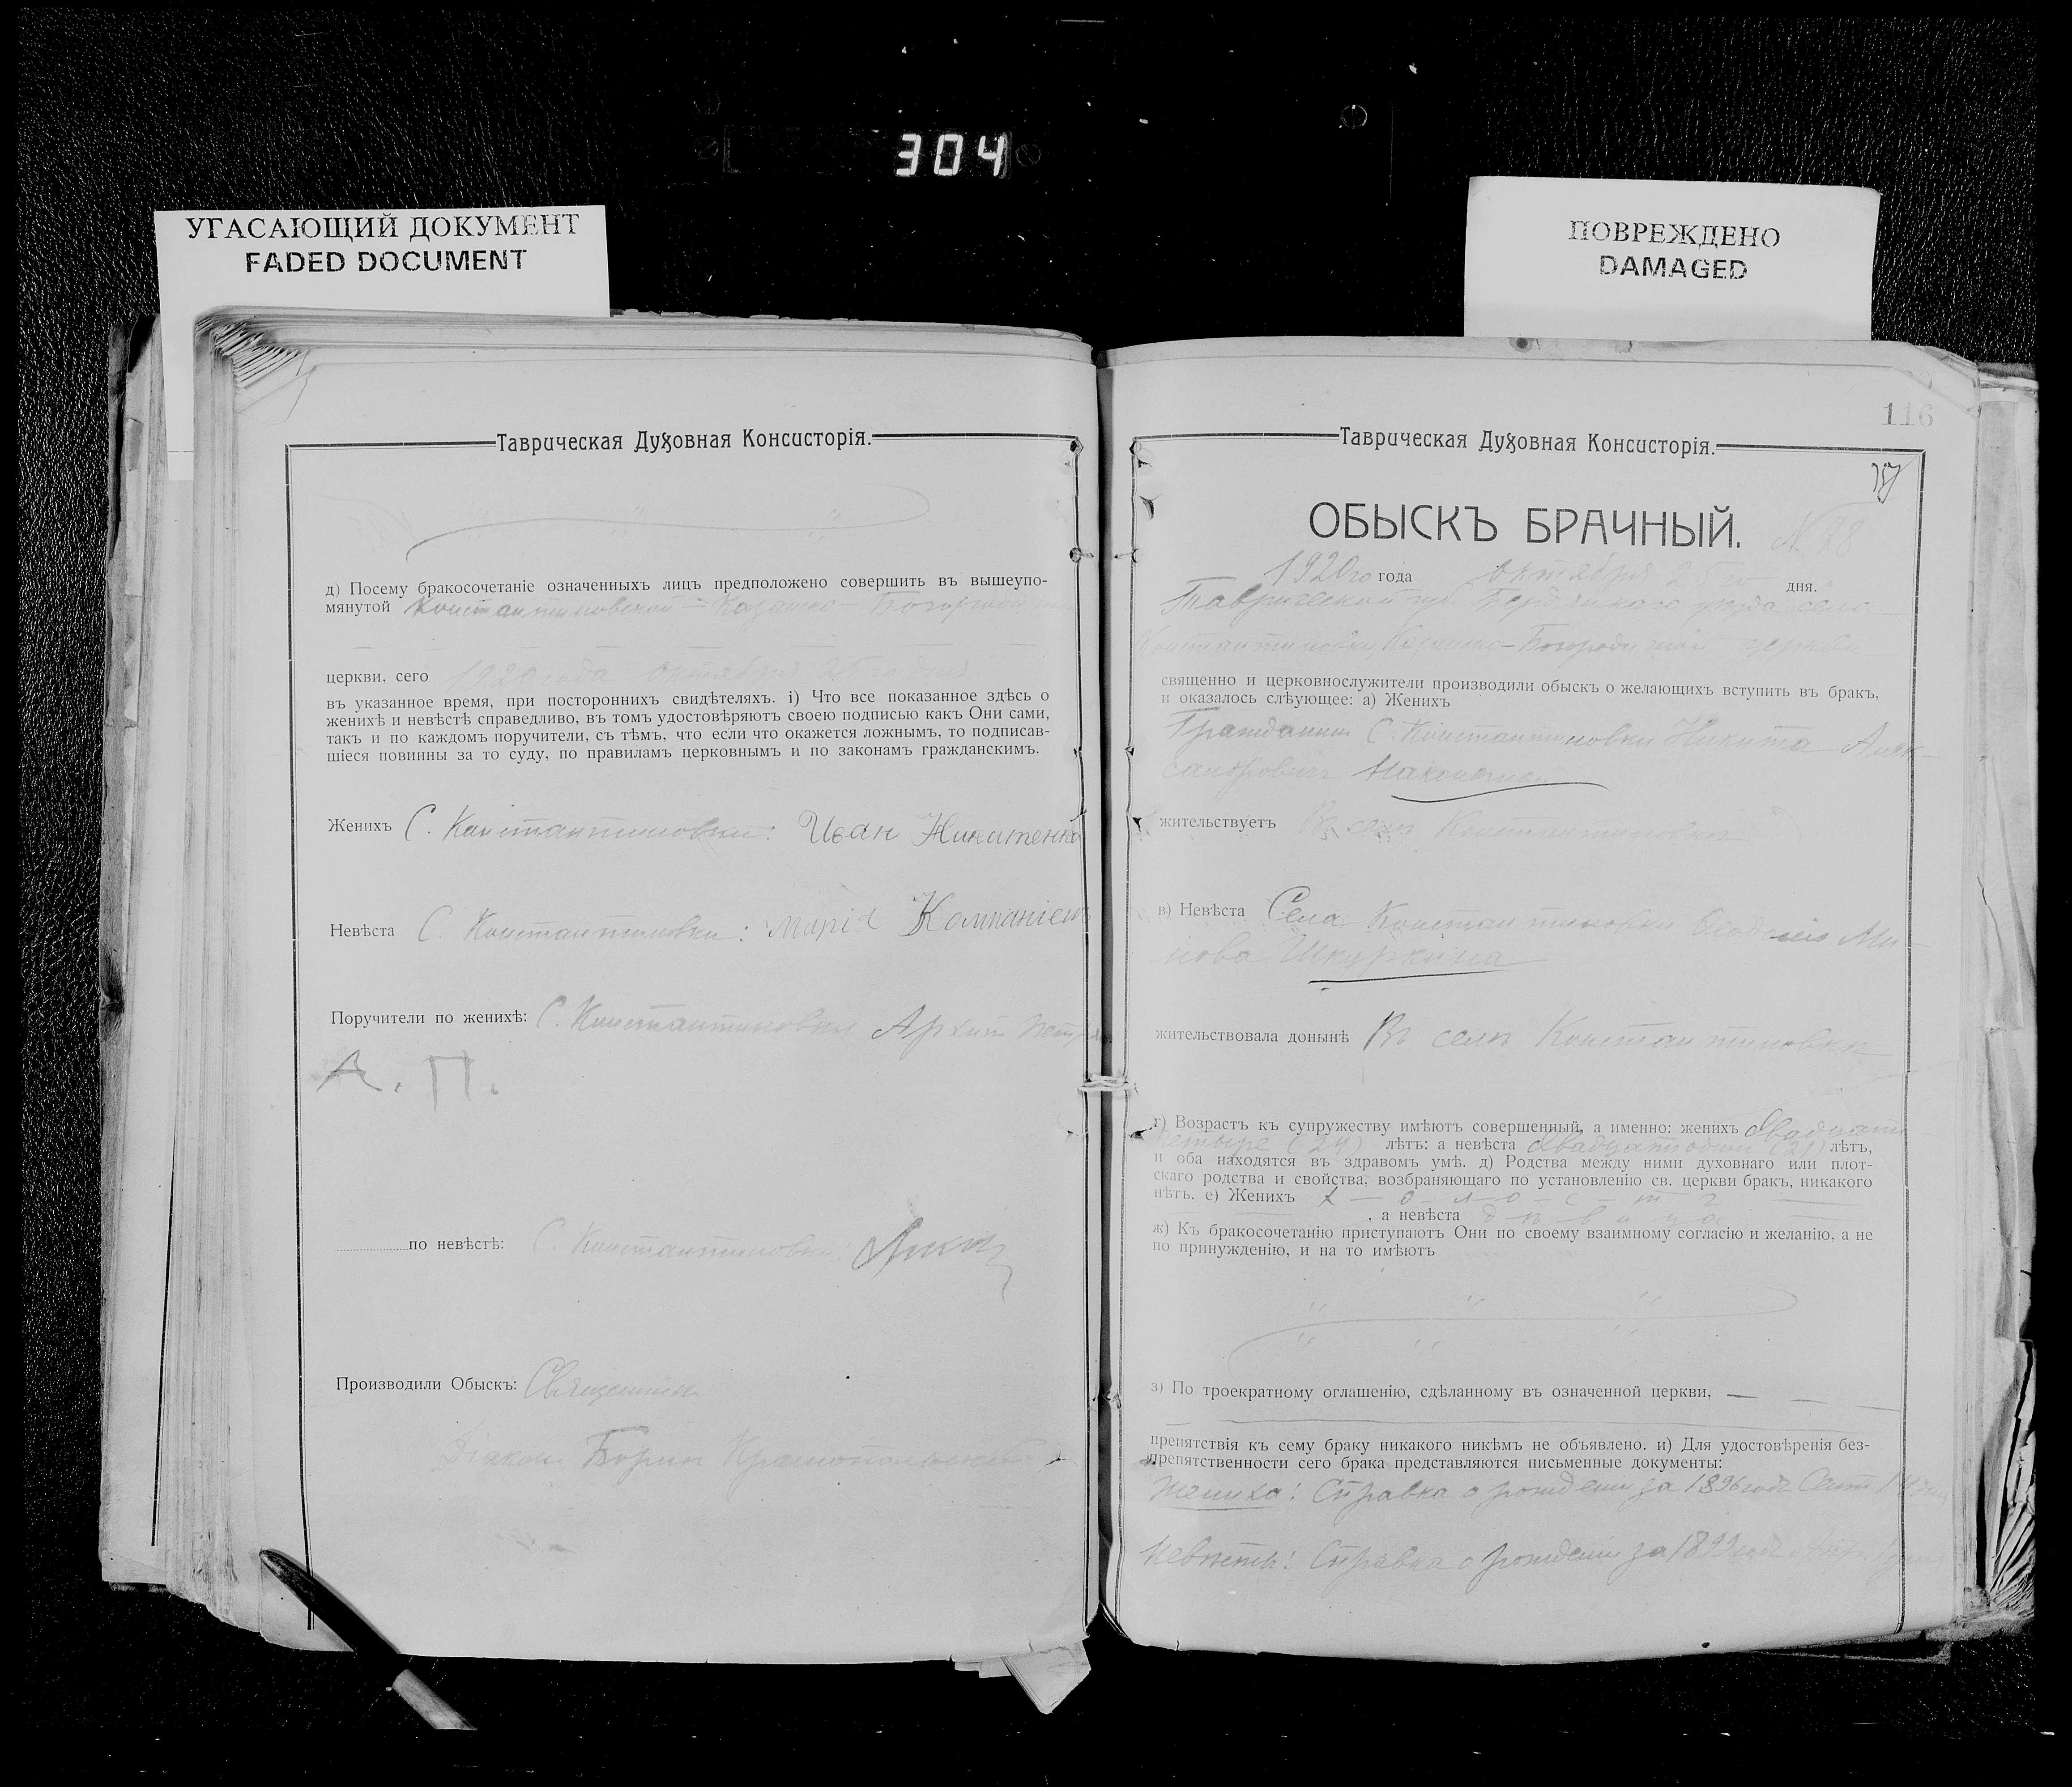 304
УГАСАЮЩИЙ ДОКУМЕНТ
FADED DOCUMENT
ПОВРЕЖДЕНО
DAMAGED
Таврическая Духовная Консисторія.
д) Посему бракосочетаніе означенныхъ лицъ предположено совершить въ вышеупо-
мянутой Константиновской - Казанско - Богород
церкви, сего 1920 года октября
въ указанное время, при постороннихъ свидѣтеляхъ. і) Что все показанное здѣсь о
женихѣ и невѣстѣ справедливо, въ томъ удостовѣряютъ своею подписью какъ Они сами,
такъ и по каждомъ поручители, съ тѣмъ, что если что окажется ложнымъ, то подписав-
шіеся повинны за то суду, по правиламъ церковнымъ и по законамъ гражданскимъ.
Женихъ С. Константиновки: Иван Никитенко
Невѣста С. Константиновки: Марія Компаніец
Поручители по женихѣ: С. Константиновки Архип
А. П.
по невѣстѣ: С. Константиновки
Производили Обыскъ: Священникъ
Діаконъ Борисъ
116
Таврическая Духовная Консисторія.
ОБЫСКЪ БРАЧНЫЙ. №
1920го года октября дня.
Таврической губ. Бердянскаго уѣзда села
Константиновки Казанско-Богородичной церкви
священно и церковнослужители производили обыскъ о желающихъ вступить въ бракъ,
и оказалось слѣующее: а) Женихъ
Гражданин С. Константиновки Никита Алек-
сандрович
жительствуетъ Въ селѣ Константиновкѣ
в) Невѣста Села Константиновки Ми-
нова Шкуркина
жительствовала донынѣ Въ селѣ Константиновкѣ
г) Возрастъ къ супружеству имѣютъ совершенный, а именно: женихъ двадцати
четыре (24) лѣтъ: а невѣста двадцати одинъ (21) лѣтъ,
и оба находятся въ здравомъ умѣ. д) Родства между ними духовнаго или плот-
скаго родства и свойства, возбраняющаго по установленію св. церкви бракъ, никакого
нѣтъ. е) Женихъ х - о - л - о - с - т
. а невѣста д - ѣ - в - и - ц - а
ж) Къ бракосочетанію приступаютъ Они по своему взаимному согласію и желанію, а не
по принужденію, и на то имѣютъ
з) По троекратному оглашенію, сдѣланному въ означенной церкви,
препятствія къ сему браку никакого никѣмъ не объявлено. и) Для удостовѣренія без-
препятственности сего брака представляются письменные документы:
Жениха: Справка о рожденіи за 1896 годъ Сент
Невѣсты: Справка о рожденіи за 1899 годъ